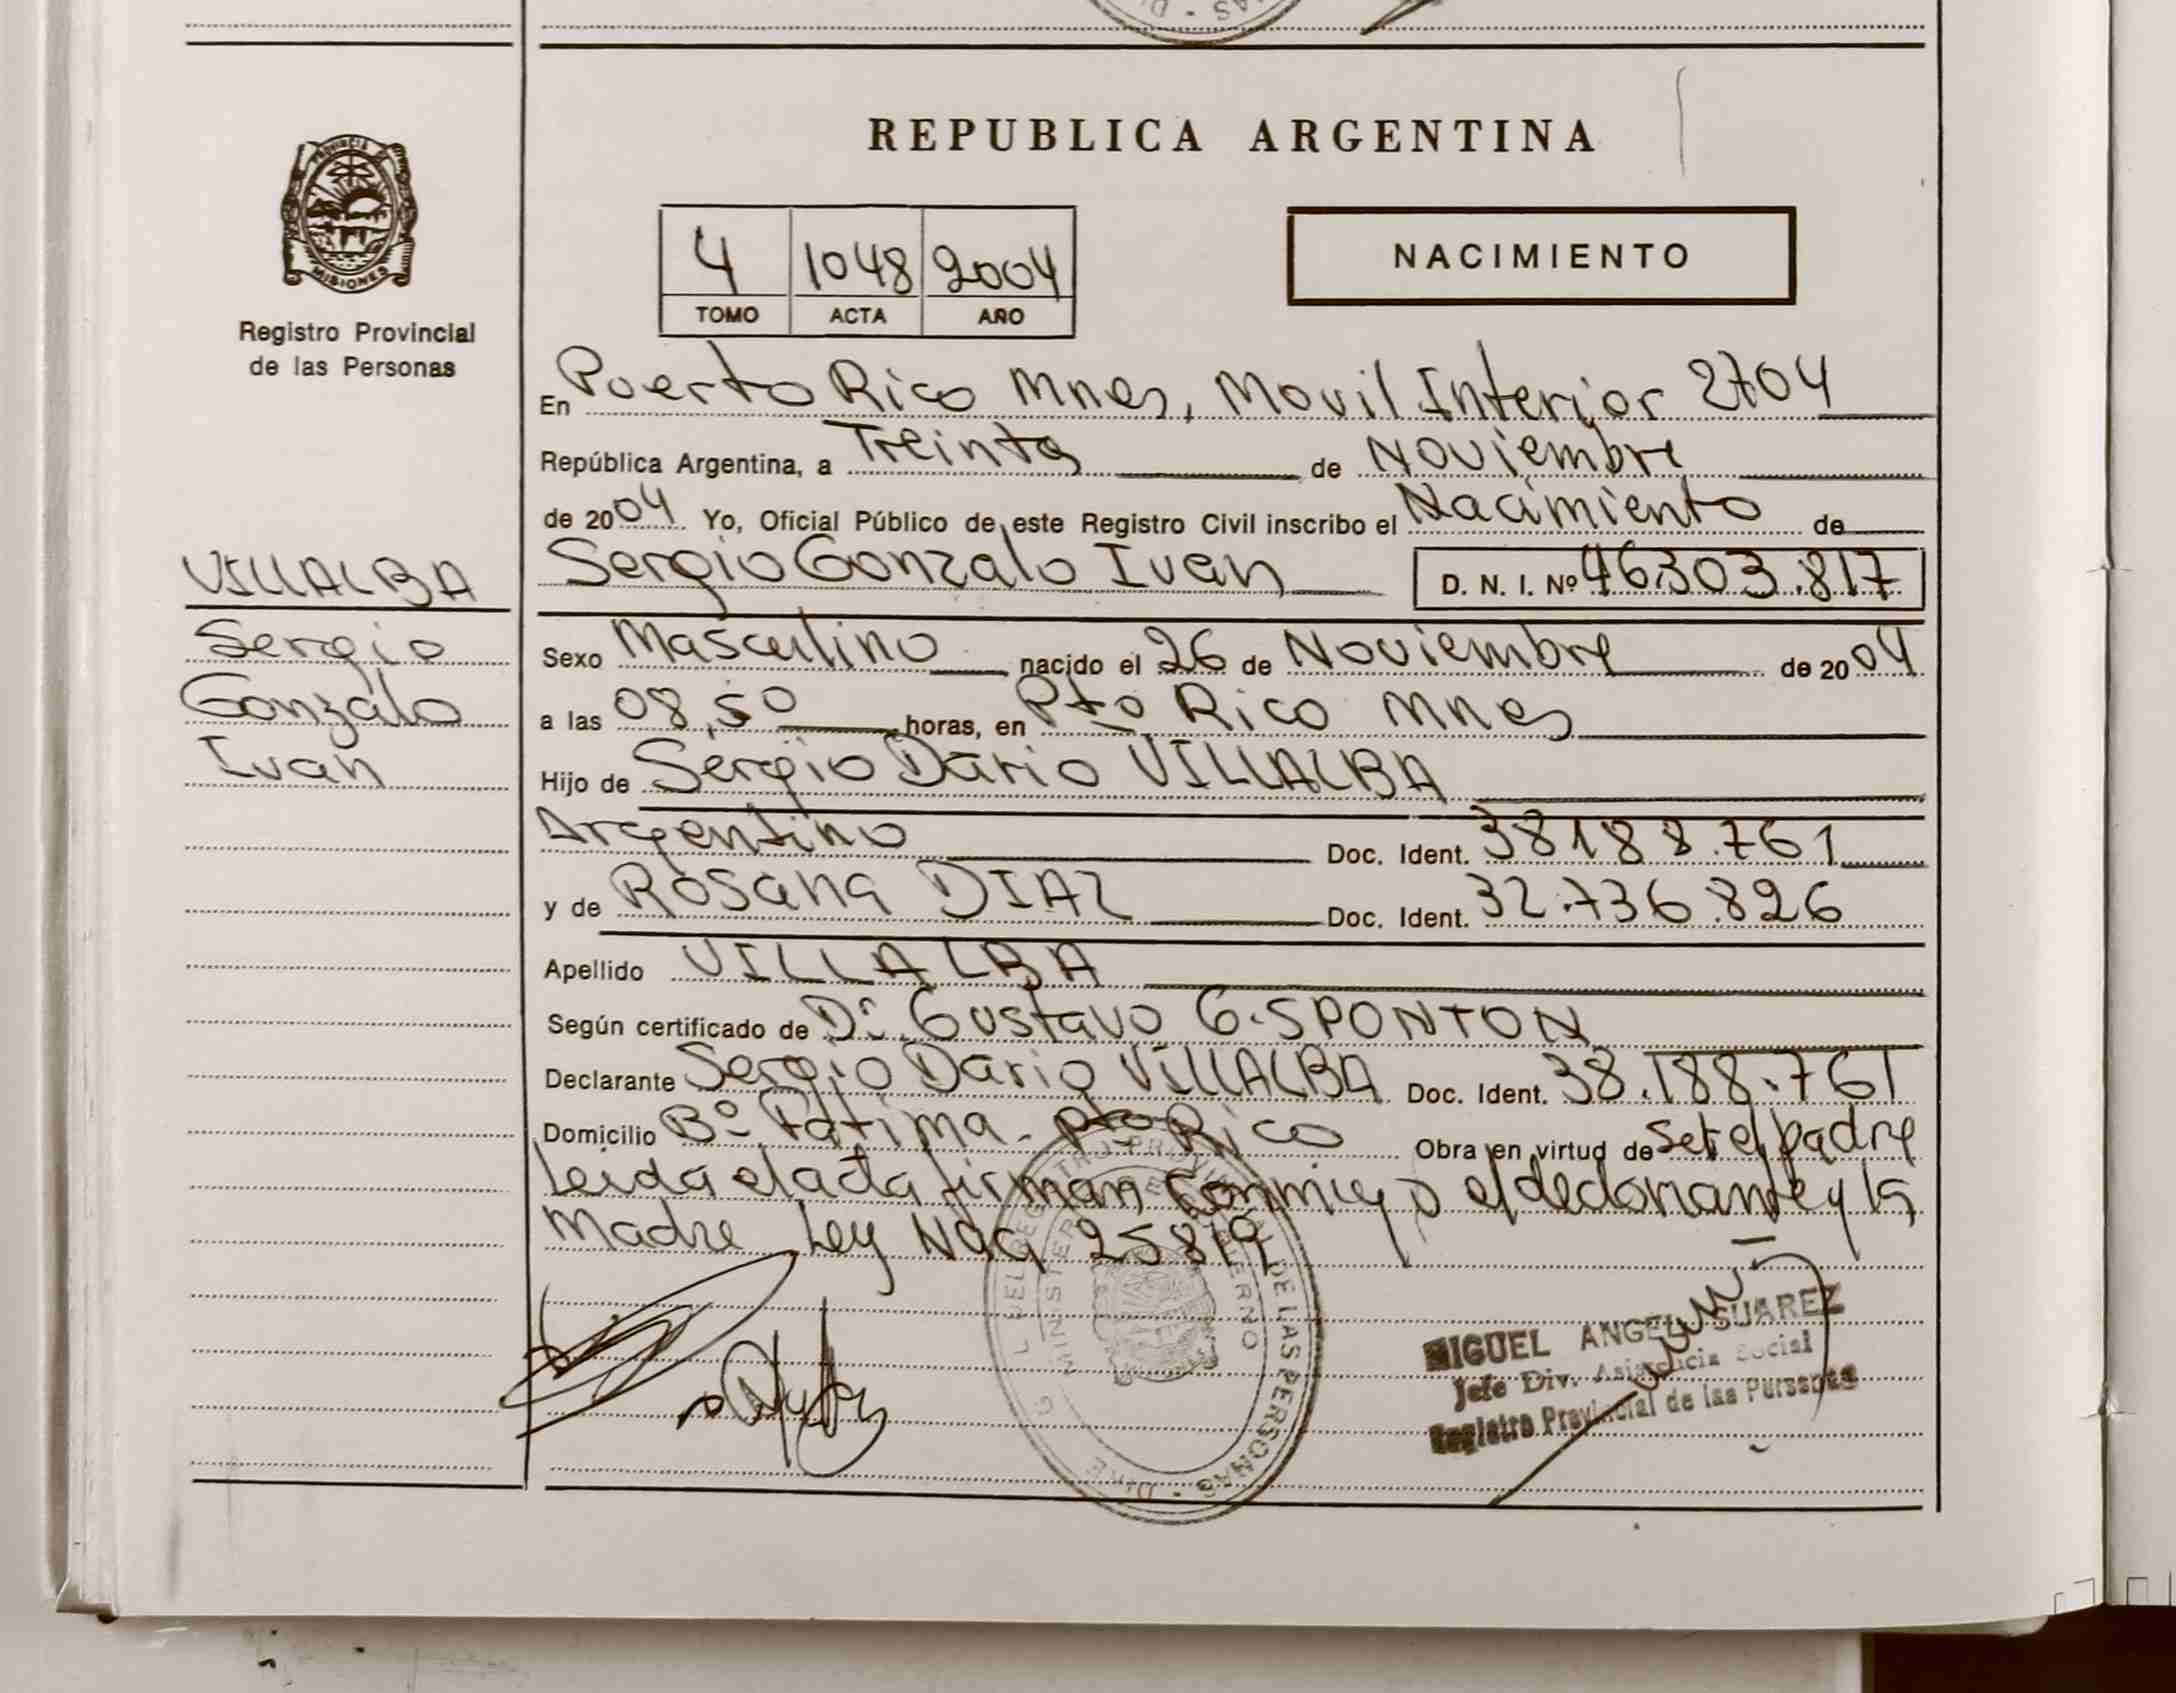 REPUBLICA ARGENTINA
PROVINCIA DE
MISIONES
Registro Provincial
de las Personas
4 1048 2004
TOMO ACTA AÑO
NACIMIENTO
En Puerto Rico Mnes, Movil Interior 2704
República Argentina, a Treinta de Noviembre
de 2004 Yo, Oficial Público de este Registro Civil inscribo el Nacimiento de
VILLALBA
Sergio
Gonzalo
Ivan
Sergio Gonzalo Ivan D. N. I. Nº 46.303.817
Sexo Masculino nacido el 26 de Noviembre de 2004
a las 08,50 horas, en Pto Rico Mnes
Hijo de Sergio Dario VILLALBA
Argentino Doc. Ident. 38188.761
y de Rosana DIAZ Doc. Ident. 32.736.826
Apellido VILLALBA
Según certificado de Dr. Gustavo G. SPONTON
Declarante Sergio Dario VILLALBA Doc. Ident. 38.188.761
Domicilio Bº Fatima - Pto Rico Obra en virtud de ser el padre
Leida el acta firman conmigo el declarante y la
Madre Ley Nac 25819
REGISTRO PROVINCIAL DE LAS PERSONAS
MIGUEL ANGEL SUAREZ
Jefe Div. Asistencia Social
Registro Provincial de las Personas